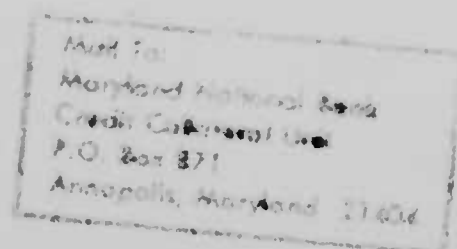 Mail To:
Maryland National Bank
Credit Collateral Unit
P.O. Box 871
Annapolis, Maryland 21404